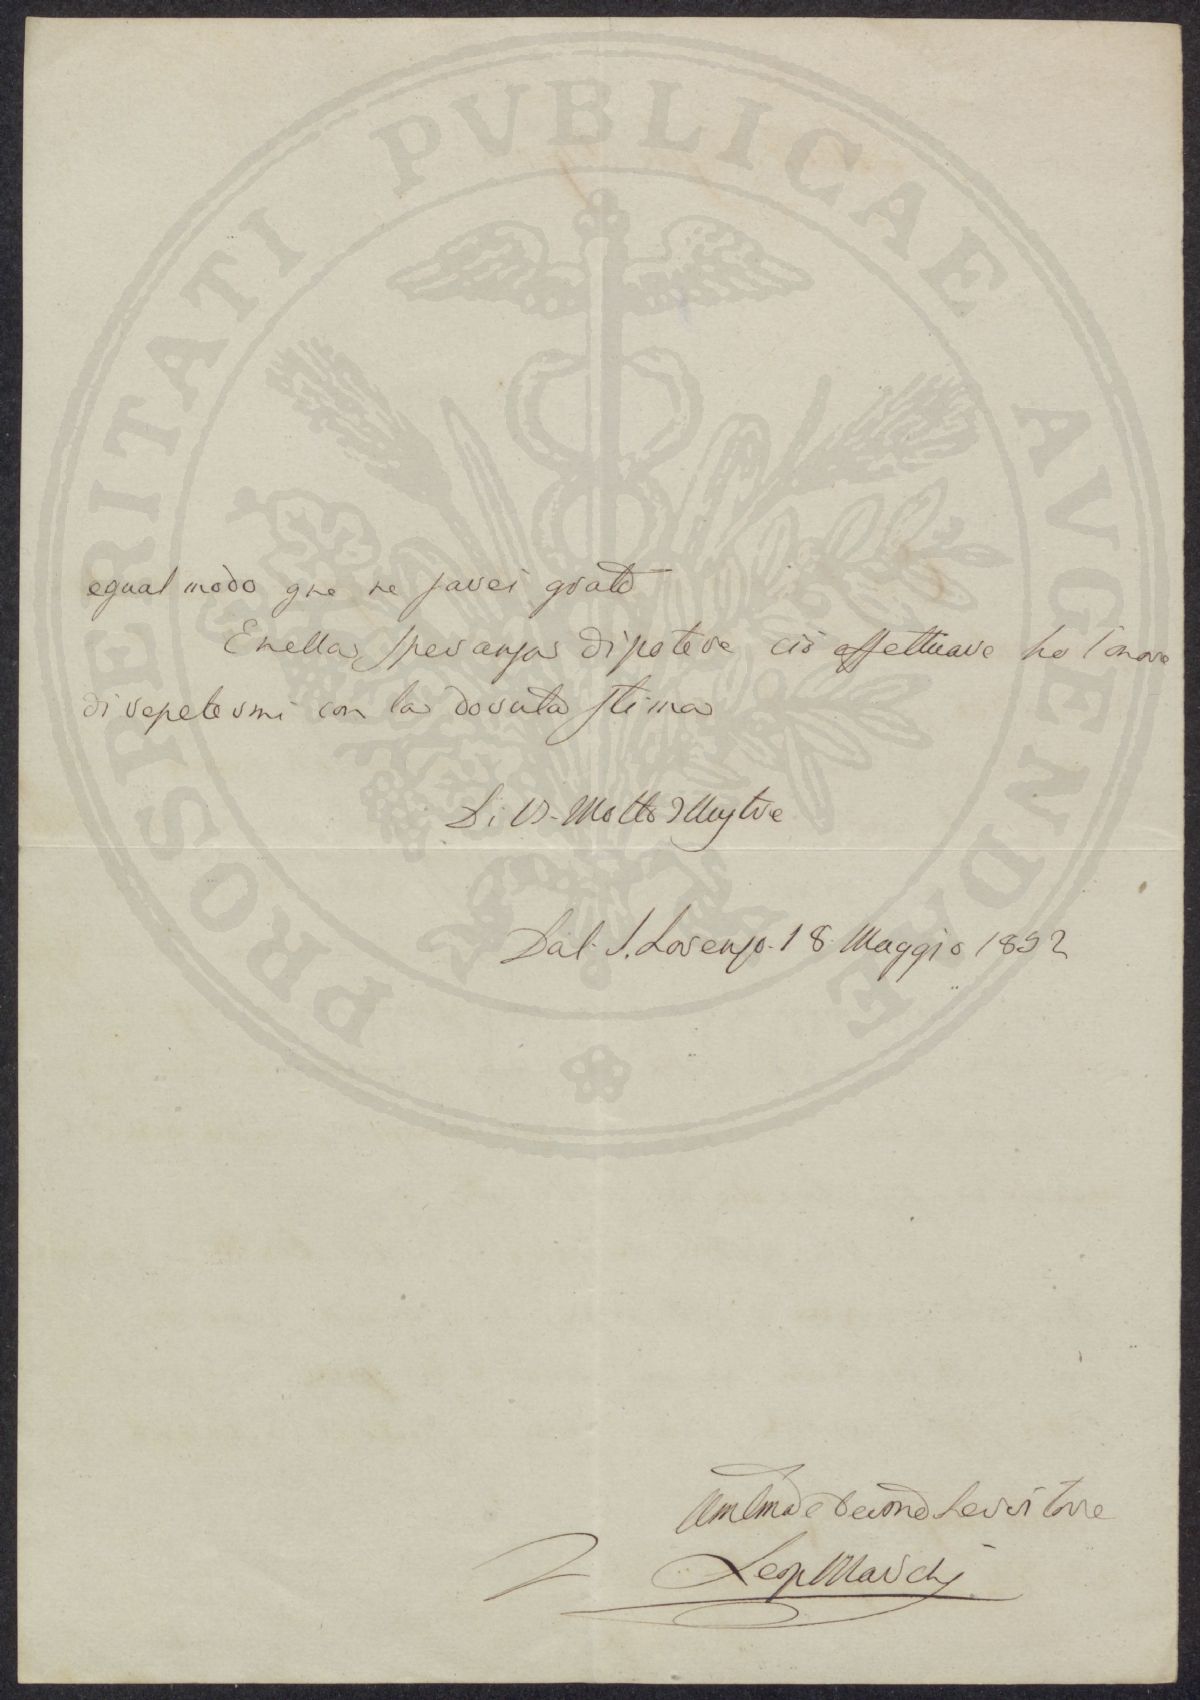 PROSPERITATI PVBLICAE AVGENDAE
egual modo gne ne sarei grato
E nella speranza di potere ciò effettuare ho l'onore
di repetermi con la dovuta stima
Di VS. Molto Illustre
Dal S. Lorenzo 18 Maggio 1852
Leop Marchi